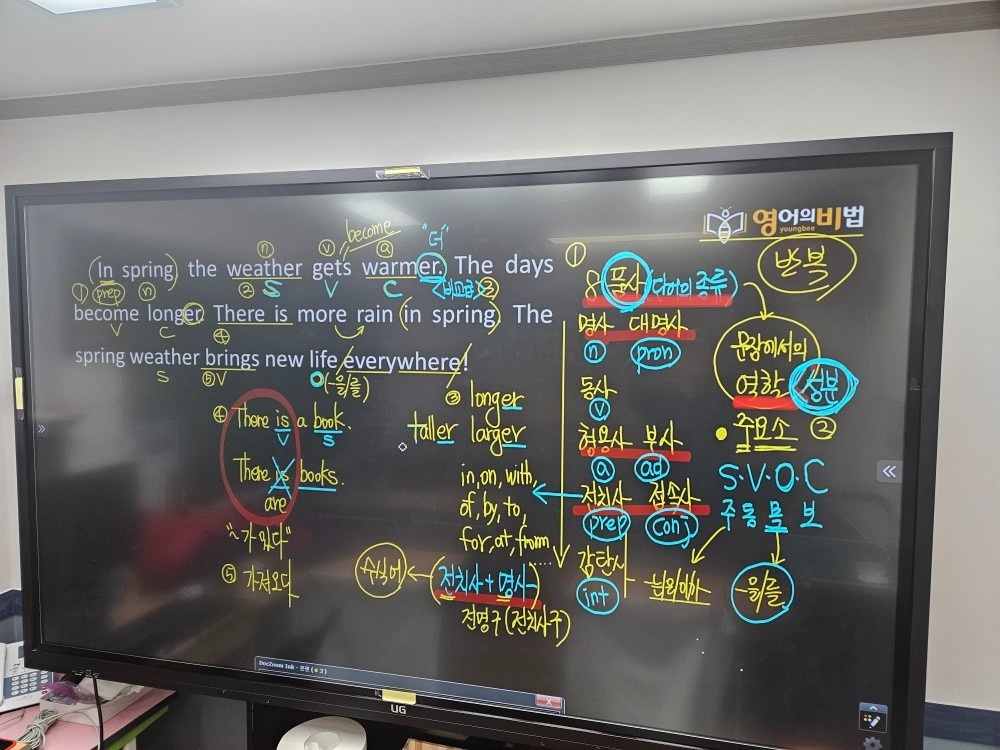 영어의비법
youngbee
반복
become
"더"
n v a
(In spring) the weather gets warmer. The days
① prep n ② S V C <비교급> ③
become longer. There is more rain (in spring). The
V C ④
spring weather brings new life everywhere!
S ⑤V O (-을/를)
④ There is a book.
V S
There is books.
are
"~가 있다"
⑤ 가져오다
③ longer
taller larger
in, on, with,
of, by, to,
for, at, from
.....
수식어 ← (전치사 + 명사)
전명구 (전치사구)
①
8품사 (단어의 종류)
명사 대명사
n pron
동사
v
형용사 부사
a ad
전치사 접속사
prep conj
감탄사
int
문장에서의
역할 성분
주요소 ②
S·V·O·C
주 동 목 보
-을/를
DocZoom Ink
UG